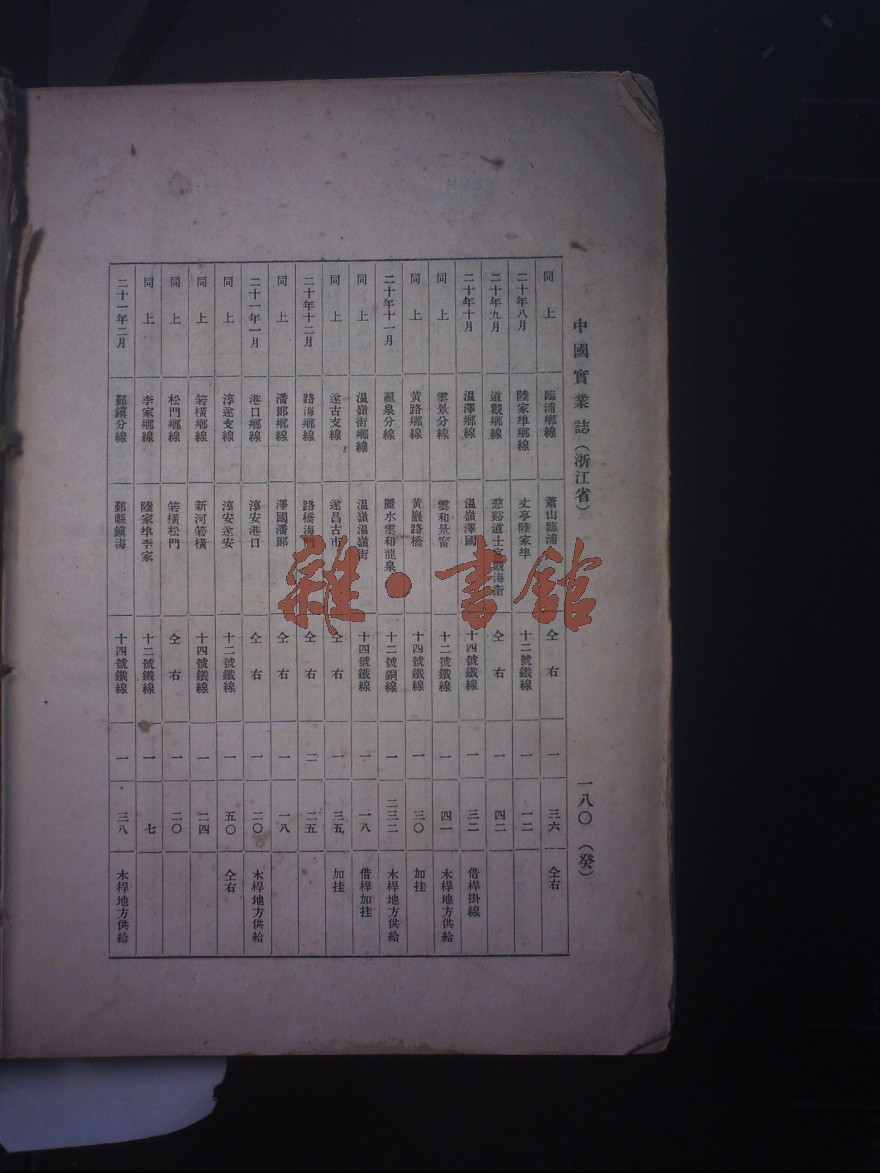 中國實業誌（浙江省）
一八〇（癸）
同上 臨浦鄉線 蕭山臨浦 仝右 一 三六 仝右
二十年八月 陸家埠鄉線 丈亭陸家埠 十二號鐵線 一 一二
二十年九月 道觀鄉線 慈谿道士宮觀海衞 仝右 一 四二
二十年十月 溫澤鄉線 溫嶺澤國 十四號鐵線 一 三二 借桿掛線
同上 雲景分線 雲和景甯 十二號鐵線 一 四一 木桿地方供給
同上 黃路鄉線 黃巖路橋 十四號鐵線 一 三〇 加挂
二十年十一月 麗泉分線 麗水雲和龍泉 十二號銅線 一 二三二 木桿地方供給
同上 溫嶺街鄉線 溫嶺溫嶺街 十四號鐵線 一 一八 借桿加挂
同上 遂古支線 遂昌古市 仝右 一 三五 加挂
二十年十二月 路海鄉線 路橋海門 仝右 二 二五
同上 潘郎鄉線 澤國潘郎 仝右 一 一八
二十一年一月 港口鄉線 淳安港口 仝右 一 二〇 木桿地方供給
同上 淳遂支線 淳安遂安 十二號鐵線 一 五〇 仝右
同上 箬橫鄉線 新河箬橫 十四號鐵線 一 二四
同上 松門鄉線 箬橫松門 仝右 一 二〇
同上 李家鄉線 陸家埠李家 十二號鐵線 一 七
二十一年二月 鄞鎮分線 鄞縣鎮海 十四號鐵線 一 三八 木桿地方供給
雜·書館